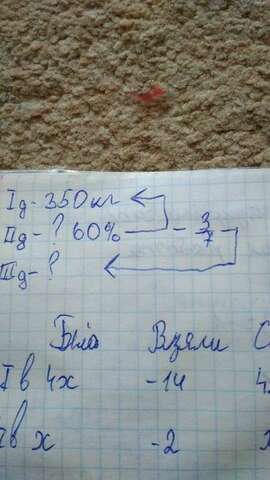 Iд - 350 кг
IIд - ? 60% - 3/7
IIIд - ?
Было Взяли С
I в 4х -14 4
в х -2 х